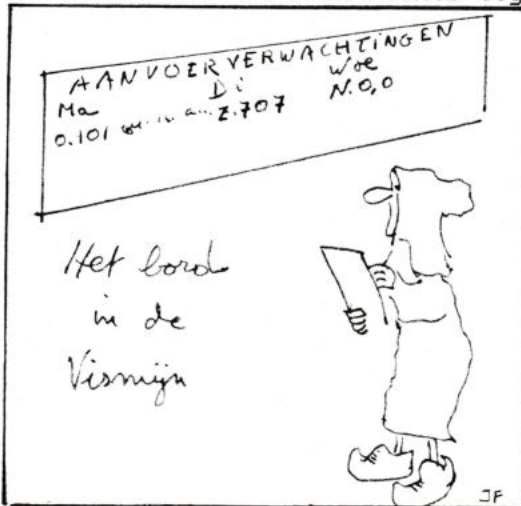 AANVOERVERWACHTINGEN
Ma Di Woe
0.101 Z.707 N.0,0
Het bord
in de
Vismijn
JF